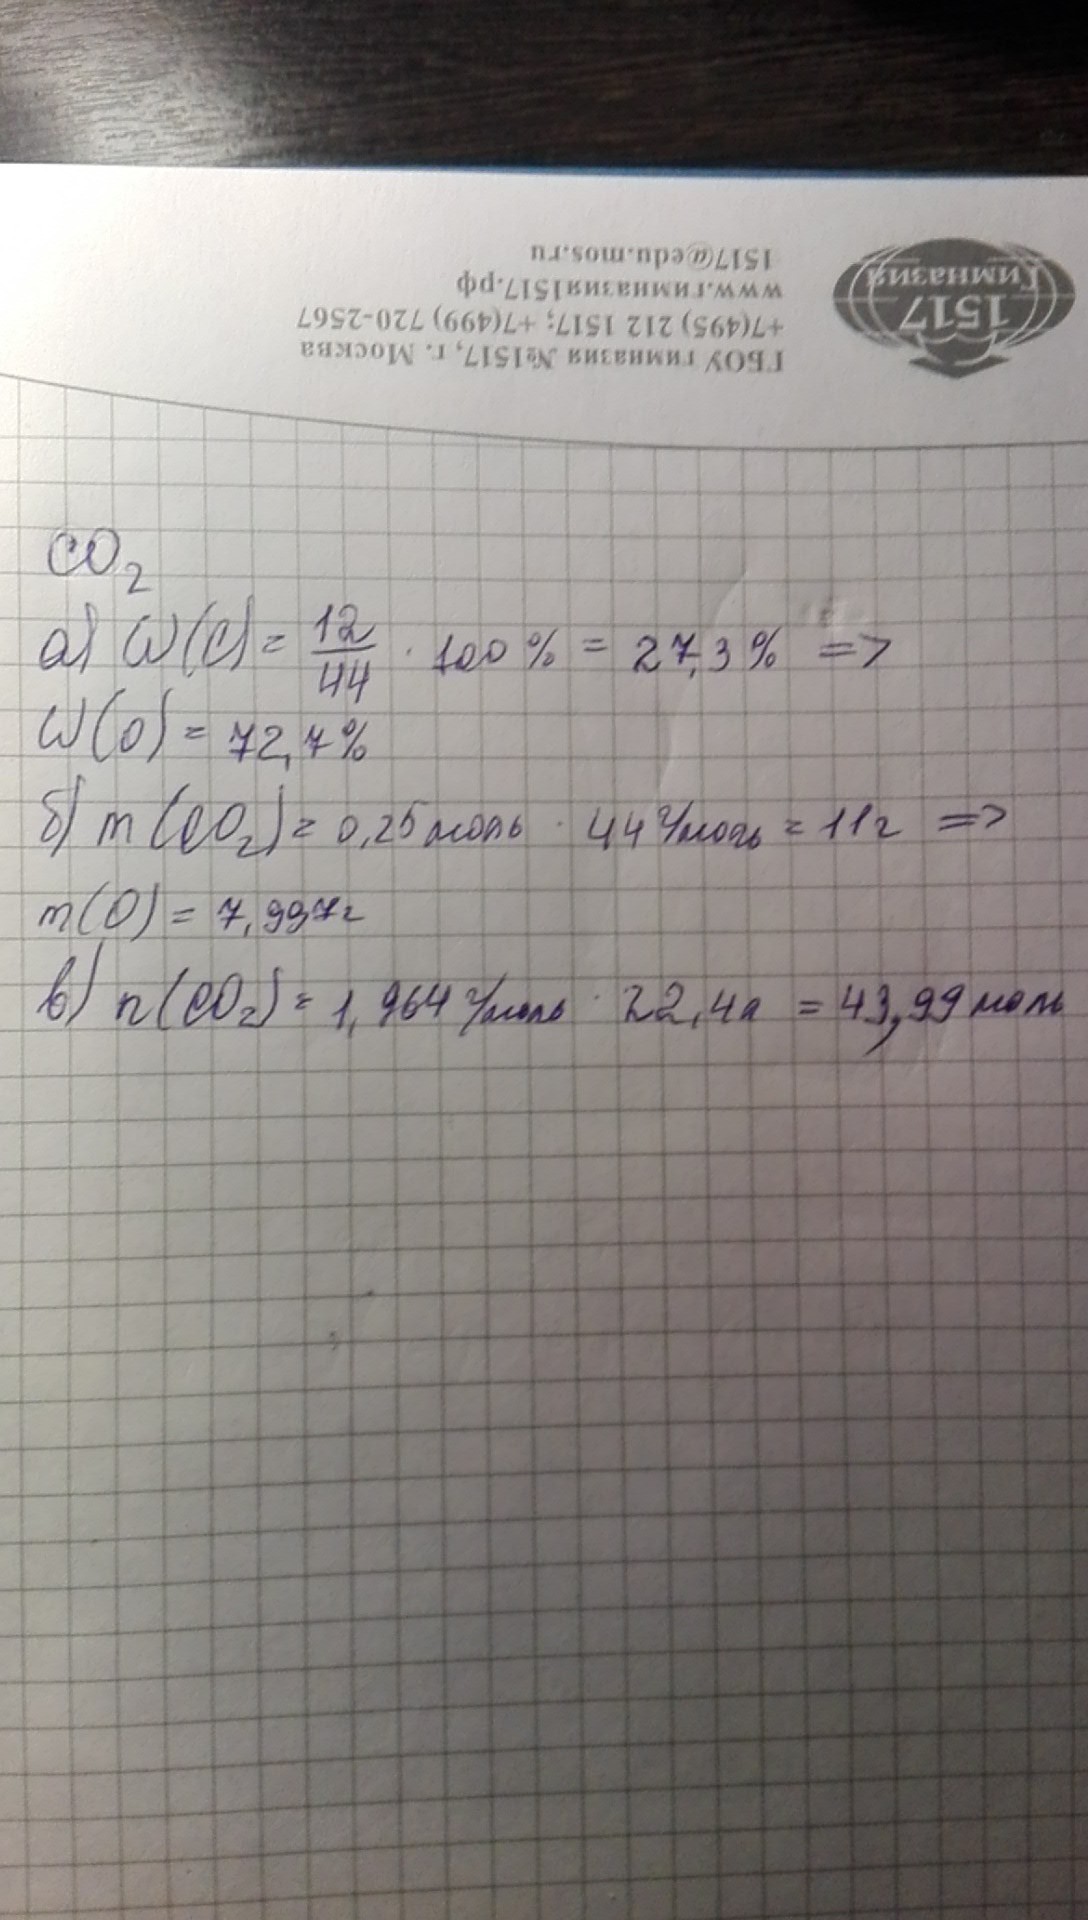 ГБОУ гимназия №1517, г. Москва
+7(495) 212 1517; +7(499) 720-2567
www.гимназия1517.рф
1517@edu.mos.ru
1517
Гимназия
CO2
а) W(C) = 12/44 · 100% = 27,3% =>
W(O) = 72,7%
б) m(CO2) = 0,25моль · 44 г/моль = 11г =>
m(O) = 7,997г
в) n(CO2) = 1,964 г/моль · 22,4л = 43,99 моль